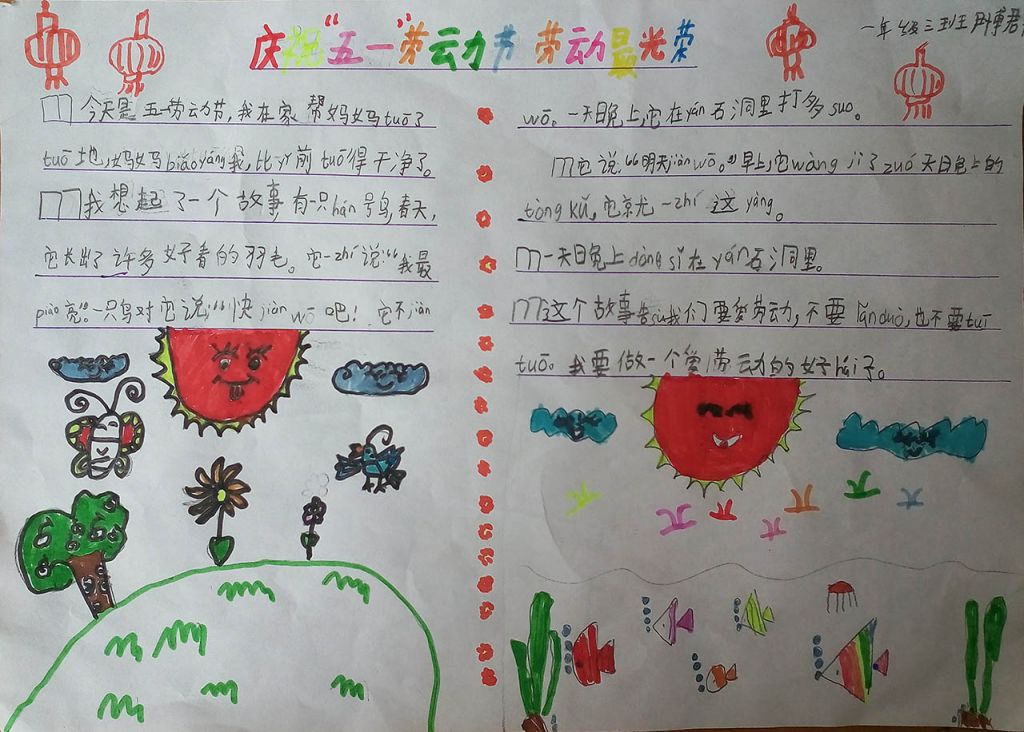 庆祝“五一”劳动节 劳动最光荣
一年级三班王
今天是五一劳动节，我在家帮妈妈tuō了
tuō地，妈妈biǎo yáng我，比yǐ前tuō得干净了。
我想起了一个故事有一只hán号鸟，春天，
它长出了许多好看的羽毛。它一zhí说“我最
piào亮”。一只鸟对它说：“快jiàn wō吧！它不jiàn
wō。一天晚上，它在yán石洞里打多suo。
它说“明天jiàn wō。”早上，它wàng jì了zuó天晚上的
tòng kǔ，它就一zhí这yàng。
一天晚上dòng sǐ在yán石洞里。
这个故事告su我们要爱劳动，不要lǎn duò，也不要tuī
tuō。我要做一个爱劳动的好hái子。